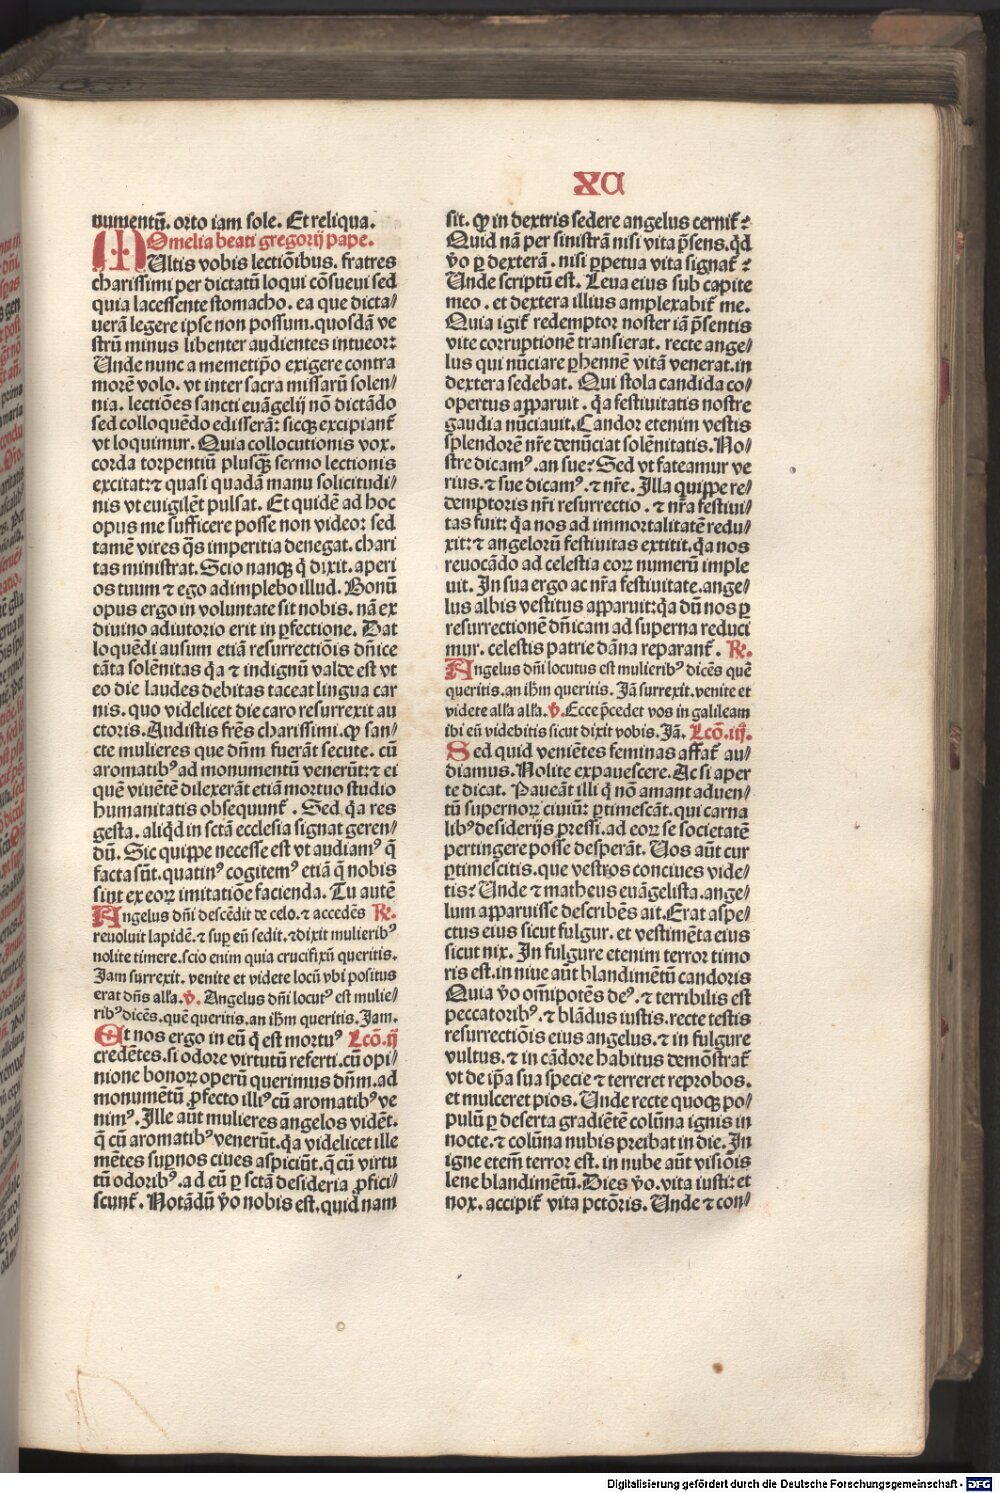 XC
numentū. orto iam sole. Et reliqua.
Omelia beati gregorij pape.
Multis vobis lectiōibus. fratres
charissimi per dictatū loqui cōsueui sed
quia lacessente stomacho. ea que dicta/
uerā legere ipse non possum. quosdā ve
strū minus libenter audientes intueor:
Unde nunc a memetip̄o exigere contra
morē volo. vt inter sacra missarū solen/
nia. lectiōes sancti euāgelij nō dictādo
sed colloquēdo edisserā: sicqꝫ excipiant᷑
vt loquimur. Quia collocutionis vox.
corda torpentiū plusqꝫ̄ sermo lectionis
excitat: ⁊ quasi quadā manu solicitudi/
nis vt euigilēt pulsat. Et quidē ad hoc
opus me sufficere posse non video: sed
tamē vires q̄s imperitia denegat. chari
tas ministrat. Scio nanqꝫ q̇ dixit. aperi
os tuum ⁊ ego adimplebo illud. Bonū
opus ergo in voluntate sit nobis. nā ex
diuino adiutorio erit in ꝑfectione. Dat
loquēdi ausum etiā resurrectiōis dn̄ice
tāta solēnitas q̇a ⁊ indignū valde est vt
eo die laudes debitas taceat lingua car
nis. quo videlicet die caro resurrexit au
ctoris. Audistis frēs charissimi. ꝙ san/
cte mulieres que dn̄m fuerāt secute. cū
aromatibꝰ ad monumentū venerūt: ⁊ ei
quē viuētē dilexerāt etiā mortuo studio
humanitatis obsequunt᷑. Sed q̇a res
gesta. aliq̇d in sctā ecclesia signat geren/
dū. Sic quippe necesse est vt audiamꝰ q̄
facta sūt. quatinꝰ cogitemꝰ etiā q̄ nobis
sint ex eoꝝ imitatiōe facienda. Tu autē
Angelus dn̄i descēdit de celo. ⁊ accedēs R̄.
reuoluit lapidē. ⁊ suꝑ eū sedit. ⁊ dixit mulieribꝰ
nolite timere. scio enim quia crucifixū queritis.
Jam surrexit. venite et videte locū vbi positus
erat dn̄s alła. v̄. Angelus dn̄i locutꝰ est mulie/
ribꝰ dicēs. quē queritis. an ih̄m queritis. Jam.
Et nos ergo in eū q̇ est mortuꝰ Lcō. ij
credētes. si odore virtutū referti. cū opi/
nione bonoꝝ operū querimus dn̄m. ad
monumētū ꝓfecto illiꝰ cū aromatibꝰ ve
nimꝰ. Ille aut mulieres angelos vidēt.
q̄ cū aromatibꝰ venerūt. q̇a videlicet ille
mētes suꝑnos ciues aspiciūt. q̄ cū virtu
tū odoribꝰ. ad eū ꝑ sctā desideria ꝓfici/
scunt᷑. Notādū v̄o nobis est. quid nam
sit. ꝙ in dextris sedere angelus cernit᷑:
Quid nā per sinistrā nisi vita p̄sens. q̇d
v̄o ꝑ dexterā. nisi ꝑpetua vita signat᷑:
Unde scriptū est. Leua eius sub capite
meo. et dextera illius amplexabit᷑ me.
Quia igit᷑ redemptor noster iā p̄sentis
vite corruptionē transierat. recte ange/
lus qui nūciare ꝑhennē vitā venerat. in
dextera sedebat. Qui stola candida co/
opertus apparuit. q̇a festiuitatis nostre
gaudia nūciauit. Candor etenim vestis
splendorē nr̄e denūciat solēnitatis. No/
stre dicamꝰ. an sue: Sed vt fateamur ve
rius. ⁊ sue dicamꝰ. ⁊ nr̄e. Illa quippe re/
demptoris nr̄i resurrectio. ⁊ nr̄a festiui/
tas fuit: q̇a nos ad immortalitatē redu/
xit: ⁊ angelorū festiuitas extitit. q̇a nos
reuocādo ad celestia eoꝝ numerū imple
uit. In sua ergo ac nr̄a festiuitate. ange/
lus albis vestitus apparuit: q̇a dū nos ꝑ
resurrectionē dn̄icam ad superna reduci
mur. celestis patrie dāna reparant᷑. R̄.
Angelus dn̄i locutus est mulieribꝰ dicēs quē
queritis. an ih̄m queritis. Jā surrexit. venite et
videte alła alła. v̄. Ecce p̄cedet vos in galileam
ibi eū videbitis sicut dixit vobis. Jā. Lcō. iij.
Sed quid veniētes feminas affat᷑ au/
diamus. Nolite expauescere. Ac si aper
te dicat. Paueāt illi q̇ nō amant aduen/
tū supernoꝝ ciuiū: ꝑtimescāt. qui carna
libꝰ desiderijs p̄ressi. ad eoꝝ se societatē
pertingere posse desperāt. Uos aūt cur
ꝑtimescitis. que vestros conciues vide/
tis: Unde ⁊ matheus euāgelista. ange/
lum apparuisse describēs ait. Erat aspe/
ctus eius sicut fulgur. et vestimēta eius
sicut nix. In fulgure etenim terror timo
ris est. in niue aūt blandimētū candoris
Quia v̄o om̄ipotēs deꝰ. ⁊ terribilis est
peccatoribꝰ. ⁊ blādus iustis. recte testis
resurrectiōis eius angelus. ⁊ in fulgure
vultus. ⁊ in cādore habitus demōstrat᷑
vt de ip̄a sua specie ⁊ terreret reprobos.
et mulceret pios. Unde recte quoqꝫ po/
pulū ꝑ deserta gradiētē colūna ignis in
nocte. ⁊ colūna nubis preibat in die. In
igne etem̄ terror est. in nube aūt visiōis
lene blandimētū. Dies v̄o. vita iusti: et
nox. accipit᷑ vita pctōris. Unde ⁊ con/
Digitalisierung gefördert durch die Deutsche Forschungsgemeinschaft - DFG